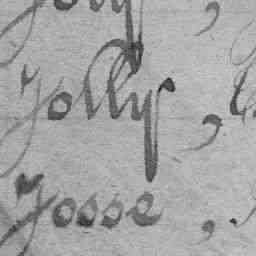 Jolly,
Josse,